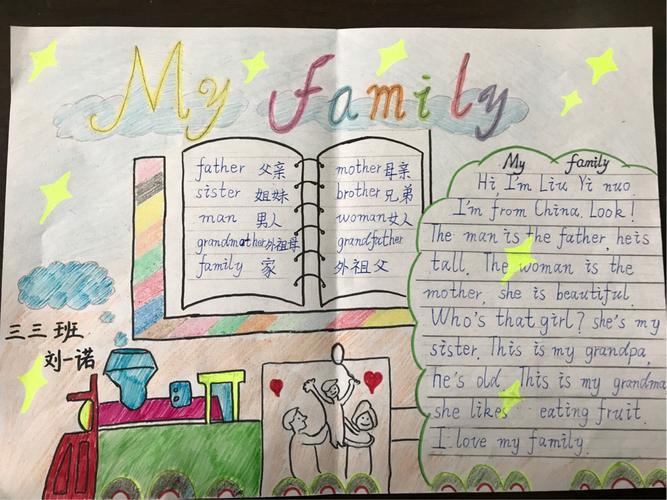 My Family
father 父亲
sister 姐妹
man 男人
grandmother外祖母
family 家
mother母亲
brother兄弟
woman女人
grandfather
外祖父
My family
Hi, I'm Liu Yi nuo.
I'm from China. Look!
The man is the father, he is
tall. The woman is the
mother, she is beautiful.
Who's that girl? she's my
sister. This is my grandpa,
he's old. This is my grandma
she likes eating fruit.
I love my family.
三三班
刘一诺